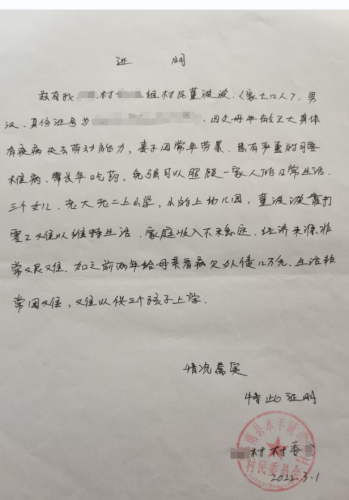 证明
兹有我 村 组村民董波波,(家七口人),男
汉,身份证号为 ,因父母年龄已大身体
有疾病失去劳动能力,妻子因常年劳累,患有严重的
椎病,需长年吃药,勉强可以照顾一家人的日常生活,
三个女儿,老大老二上小学,小的上幼儿园,董波波靠打
零工难以维持生活,家庭收入不稳定,经济来源非
常艰难,加之前两年给母亲看病欠外债几万元,生活较
常困难,难以供三个孩子上学。
情况属实
特此证明
村村委
村民委员会
2022.3.1